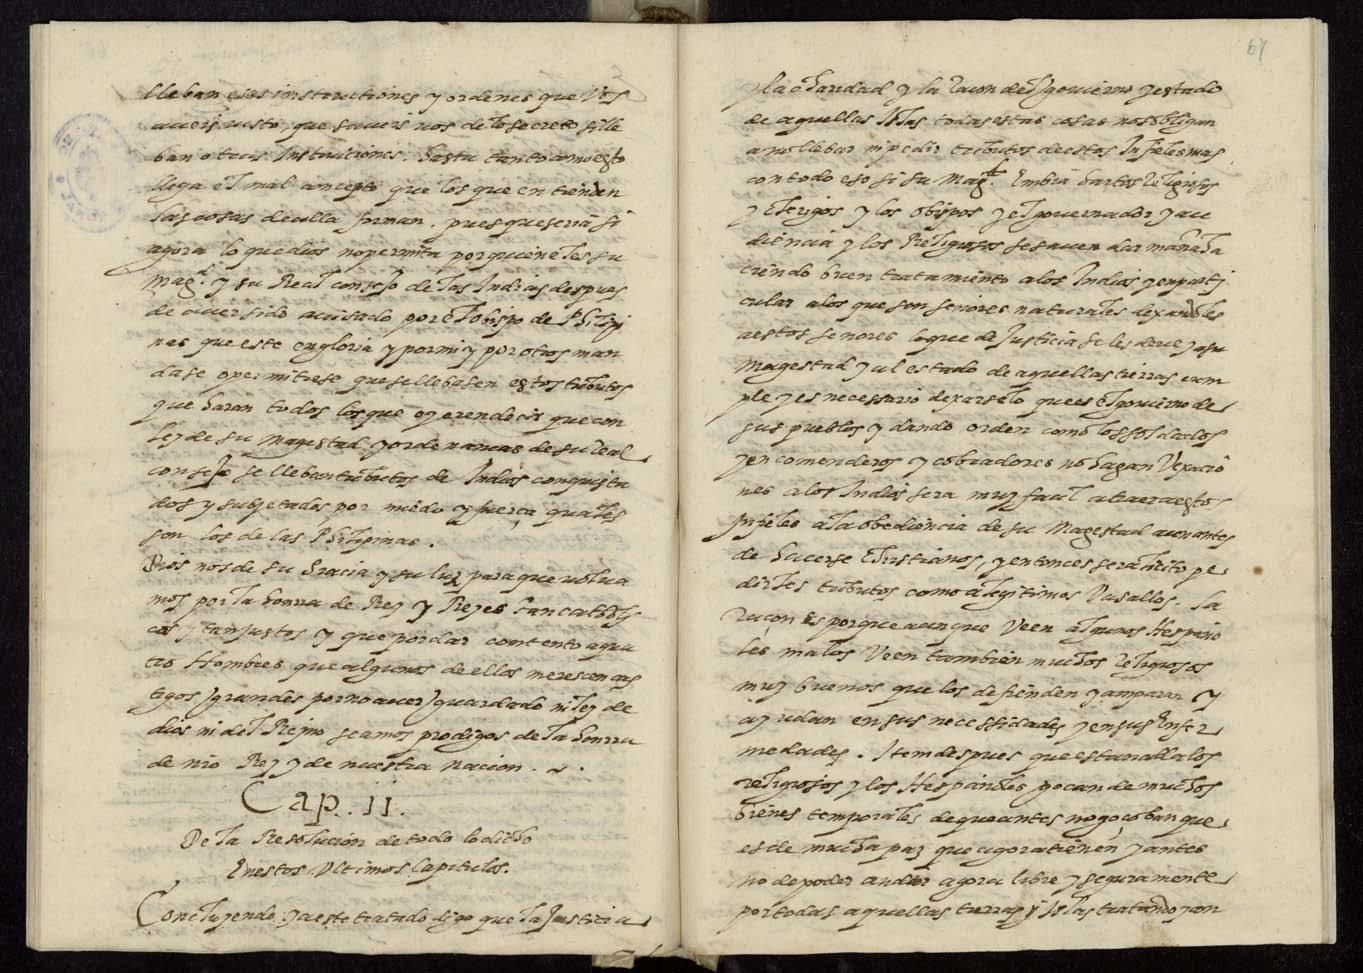 lleban esas instructiones y ordenes que Vos
aveis visto, que saveis vos de lo secreto si lle
ban otras Instruciones. Hasta tanto como esto
llega el mal concepto que los que entienden
las cosas de alla forman. pues que seria si
agora lo que dios no permita por quien el es su
Magd. y su Real consejo de las Indias despues
de aver sido avisado por el obispo de Philipi
nas que este en gloria y por mi y por otros man
dase o permitiese que se llebasen estos tributos
que haran todos los que oyeren decir que con
ley de su magestad y ordenancas de su real
consejo se lleban tributos de Indios conquista
dos y subjetados por miedo y fuerça quales
son los de las Philipinas.
Dios nos de su Gracia y su luz para que volva
mos por la honrra de Rey y Reyes tan catholi
cos y tan justos y que por dar contento a qua
tro Hombres que algunos de ellos merescen cas
tigos grandes por no aver guardado ni ley de
dios ni del Reyno seamos prodigos de la honrra
de nro Rey y de nuestra nacion.
Cap. 11.
De la Resolucion de todo lo dicho
En estos Ultimos Capitulos.
Concluyendo ya este tratado digo que la Justicia
67
y la charidad y la racon del govierno y estado
de aquellas Islas todas estas cosas nos obligan
a no llebar ni pedir tributos de estos Infieles mas
con todo eso si su Magd. Embia hartos religiosos
y clerigos y los obispos y el governador y au
diencia y los Religiosos se saven dar maña ha
ciendo buen tratamiento a los Indios y en parti
cular a los que son señores naturales dexandoles
a estos señores lo que de Justicia se les deve y a su
Magestad y al estado de aquellas tierras cum
ple y es necessario dexarselo que es el govierno de
sus pueblos y dando orden como los soldados
y encomenderos y cobradores no hagan Vexacio
nes a los Indios sera muy facil atraer a estos
Infieles a la obediencia de su Magestad aun antes
de hacerse Christianos, y entonces sera licito pe
dirles tributos como a legitimos Vasallos. La
racon es porque aunque Veen algunos Hespaño
les malos Veen tambien muchos religiosos
muy buenos que los defienden y amparan y
ayudan en sus necessidades y en sus Enfer
medades. Item despues que estan alla los
religiosos y los Hespañoles gocan de muchos
bienes temporales de que antes no goçoban que
es de mucha paz que agora tienen y antes
no de poder andar agora libre y seguramente
por todas aquellas tierras y Islas tratando y an